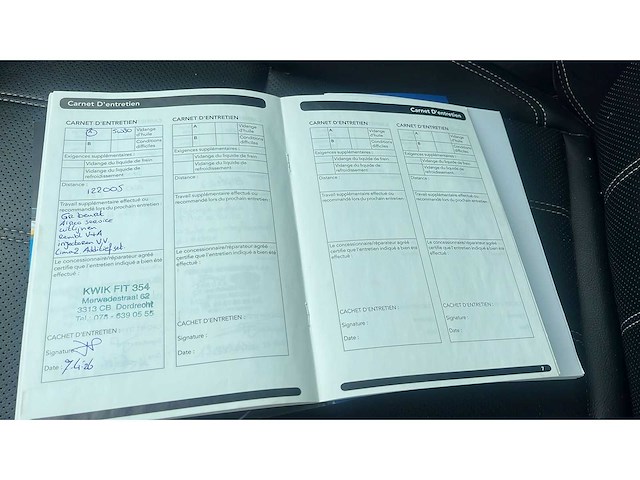 Carnet D'entretien
CARNET D'ENTRETIEN
A
5W30
Vidange d'huile
B
Conditions difficiles
Exigences supplémentaires :
Vidange du liquide de frein
Vidange du liquide de refroidissement
Distance :
122005
Travail supplémentaire effectué ou
recommandé lors du prochain entretien :
Airco service
Le concessionnaire/réparateur agréé
certifie que l'entretien indiqué a bien été
effectué :
KWIK FIT 354
Merwedestraat 62
3313 CB Dordrecht
Tel.: 078 - 639 05 55
CACHET D'ENTRETIEN :
Signature :
Date :
CARNET D'ENTRETIEN
A
Vidange d'huile
B
Conditions difficiles
Exigences supplémentaires :
Vidange du liquide de frein
Vidange du liquide de refroidissement
Distance :
Travail supplémentaire effectué ou
recommandé lors du prochain entretien :
Le concessionnaire/réparateur agréé
certifie que l'entretien indiqué a bien été
effectué :
CACHET D'ENTRETIEN :
Signature :
Date :
Carnet D'entretien
CARNET D'ENTRETIEN
A
Vidange d'huile
B
Conditions difficiles
Exigences supplémentaires :
Vidange du liquide de frein
Vidange du liquide de refroidissement
Distance :
Travail supplémentaire effectué ou
recommandé lors du prochain entretien :
Le concessionnaire/réparateur agréé
certifie que l'entretien indiqué a bien été
effectué :
CACHET D'ENTRETIEN :
Signature :
Date :
CARNET D'ENTRETIEN
A
Vidange d'huile
B
Conditions difficiles
Exigences supplémentaires :
Vidange du liquide de frein
Vidange du liquide de refroidissement
Distance :
Travail supplémentaire effectué ou
recommandé lors du prochain entretien :
Le concessionnaire/réparateur agréé
certifie que l'entretien indiqué a bien été
effectué :
CACHET D'ENTRETIEN :
Signature :
Date :
7